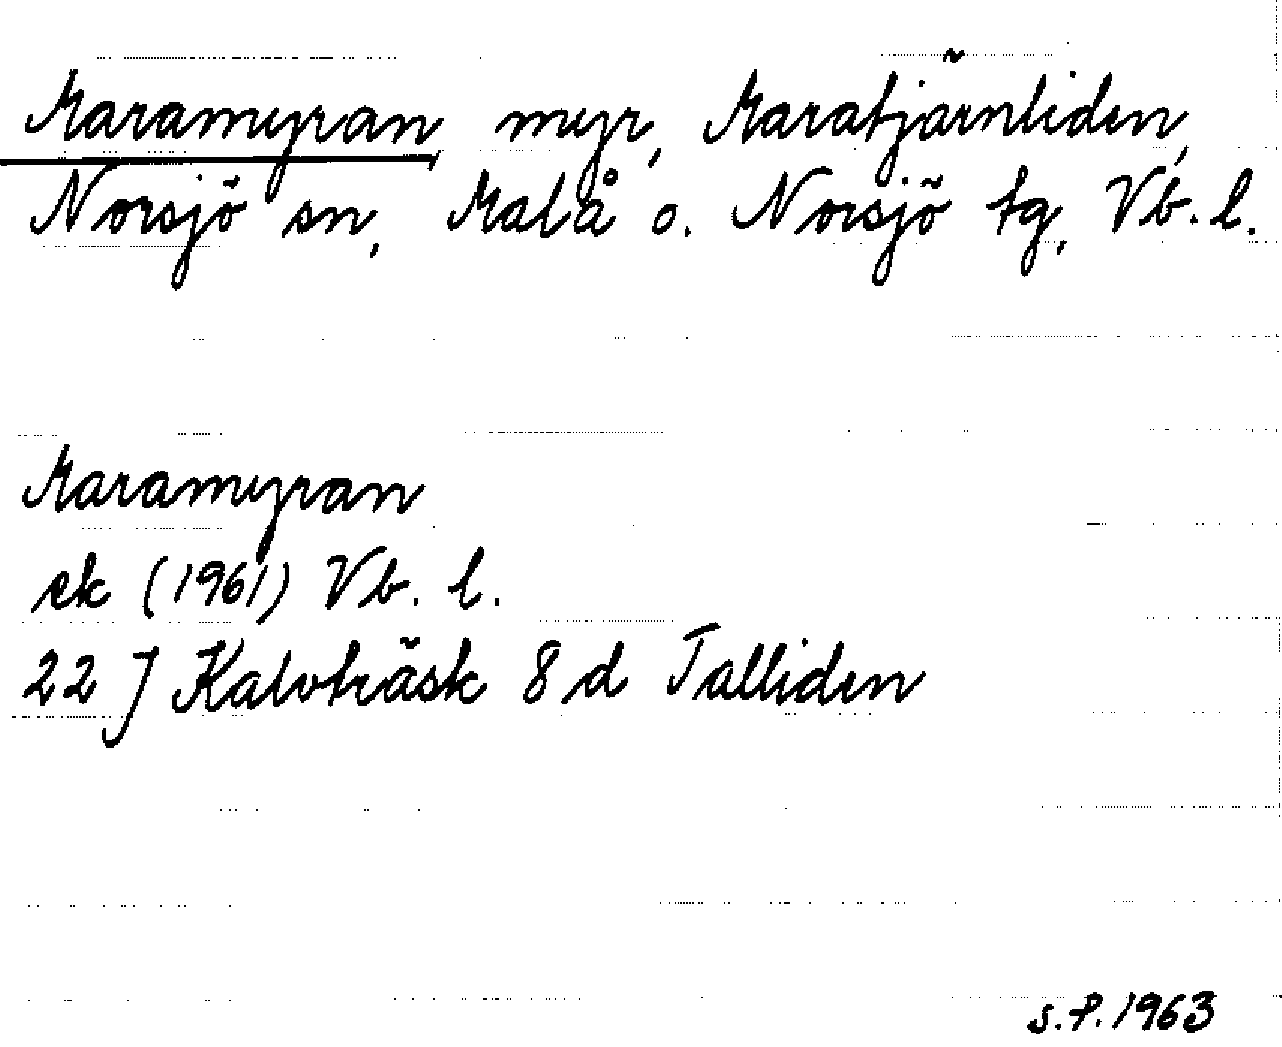 Maramyran, myr, Maratjärnliden,
Norsjö sn, Malå o. Norsjö tg, Vb. l.
Maramyran
ek (1961) Vb. l.
22 J Kalvträsk 8 d Talliden
s.P. 1963